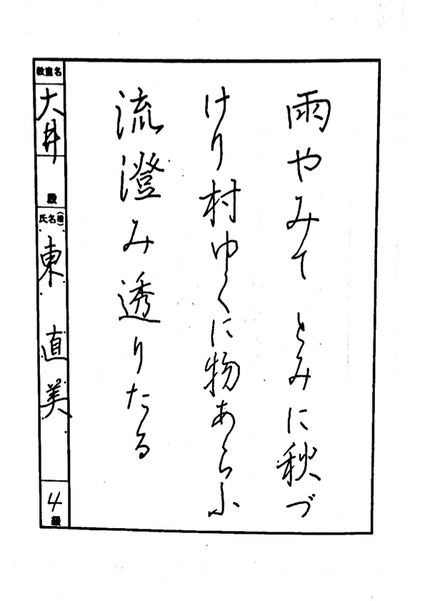 雨やみて とみに秋づ
けり村ゆくに物あらふ
流澄み透りたる
教室名
大井
段
氏名
東 直美
4級